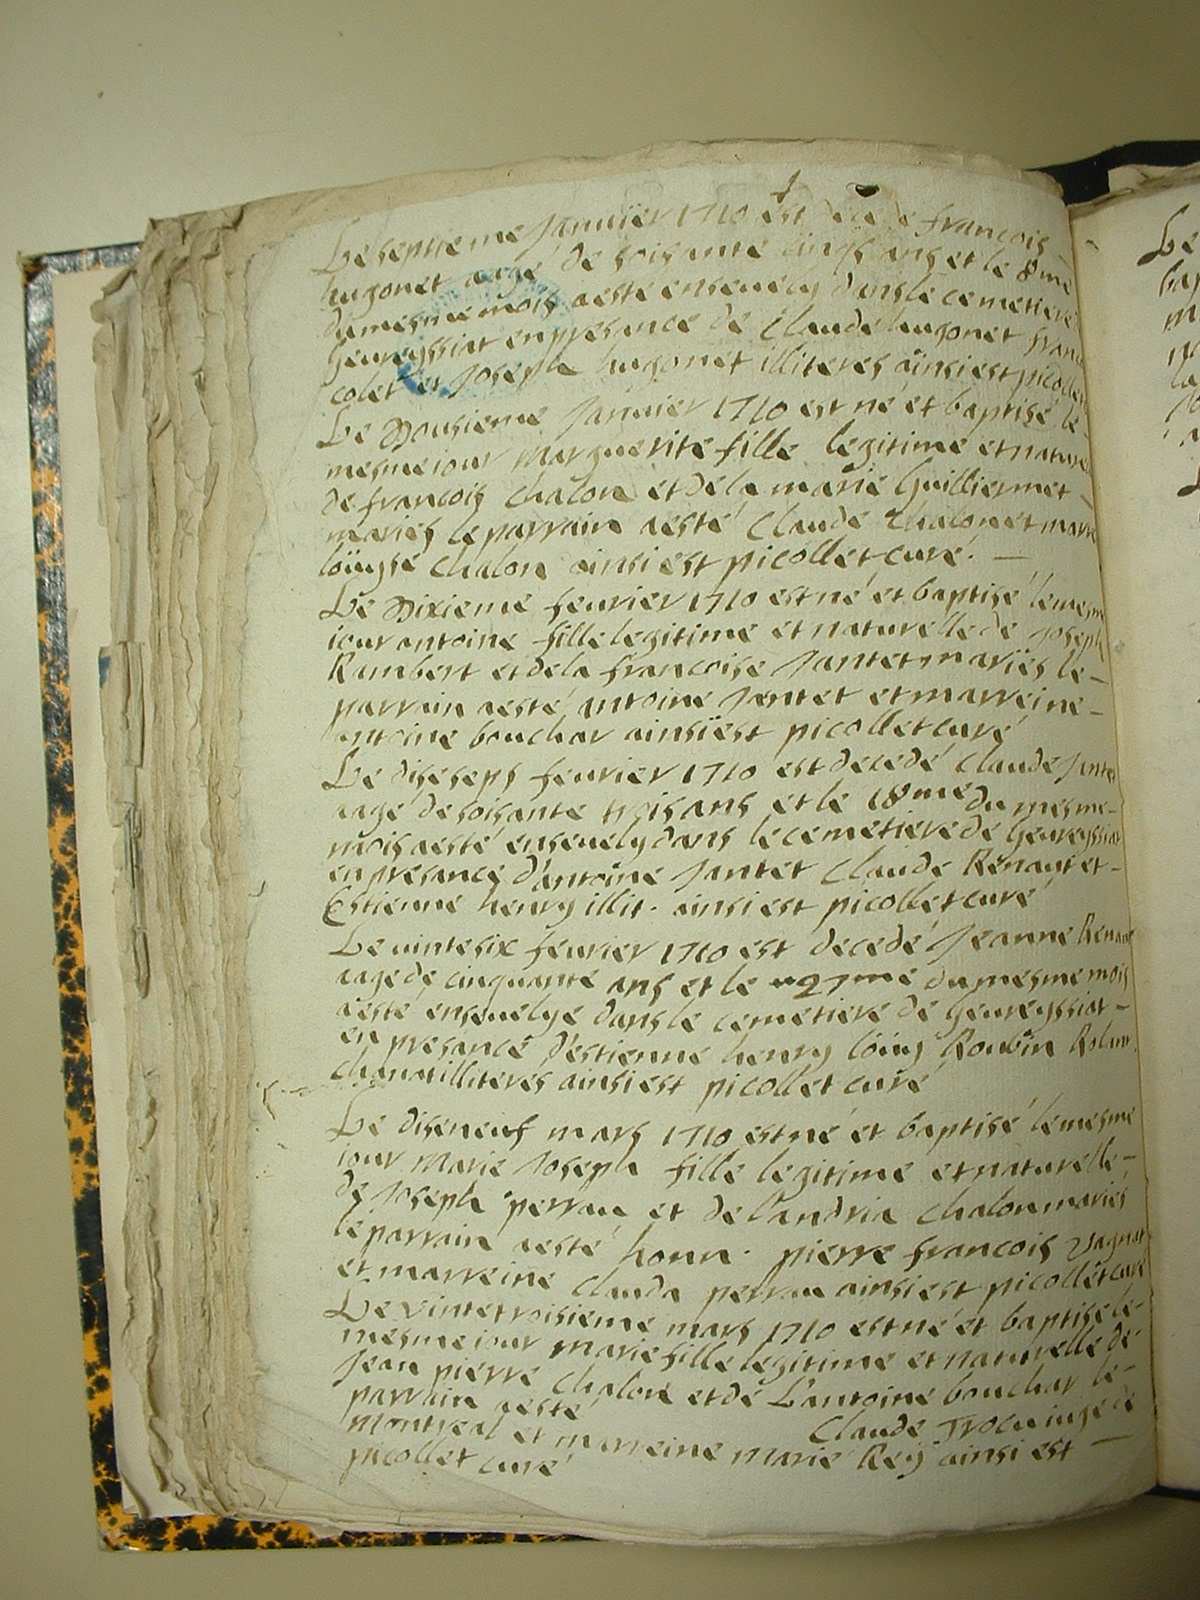 Le septieme Januier 1710 est decede francois
hugonet aagé de soisante cinq ans et le 8me
du mesme mois aesté enseuely dans le cemetiere
Geureyssiat en presance de Claude hugonet franc
colet et Joseph hugonet illiteres ainsi est picollet
Le Dousieme Januier 1710 est né et baptisé le
mesme iour Marguerite fille legitime et naturel
de francois Chalon et de la marie Guilliermet
mariés le parrain aesté Claude Chalon et marre
loüyse Chalon ainsi est picollet curé.
Le Dixieme feurier 1710 est né et baptisé le mesm
iour antoine fille legitime et naturelle de Joseph
Rambert et de la francoise Jantet mariés le
parrain aesté antoine Jantet et marreine
antoine bouchar ainsi est picollet curé
Le diseseps feurier 1710 est decedé Claude Jantet
aagé de soisante trois ans et le 18me du mesme
mois aesté enseuely dans le cemetiere de Geureyssiat
en presance d'antoine Jantet Claude Renayt et
Estienne henry illit. ainsi est picollet curé
Le uintesix feurier 1710 est decedé Jeanne
aage de cinquante ans et le 27me du mesme mois
aesté enseuelye dans le cemetiere de Geureyssiat
en presancé d'estienne henry löuy Roubin
illiteres ainsi est picollet curé
Le diseneuf mars 1710 est né et baptisé le mesme
iour Marie Joseph fille legitime et naturelle
de Joseph perrau et de l'andria Chalon mariés
le parrain aesté honn. pierre francois
et marreine Clauda perrau ainsi est picollet curé
Le vintetroisieme mars 1710 est né et baptise le
mesme iour marie fille legitime et naturelle de
Jean pierre Chalon et de L'antoine bouchar le
parrain aesté Claude iuge de
montreal et marreine marie Rey ainsi est
picollet curé
Le